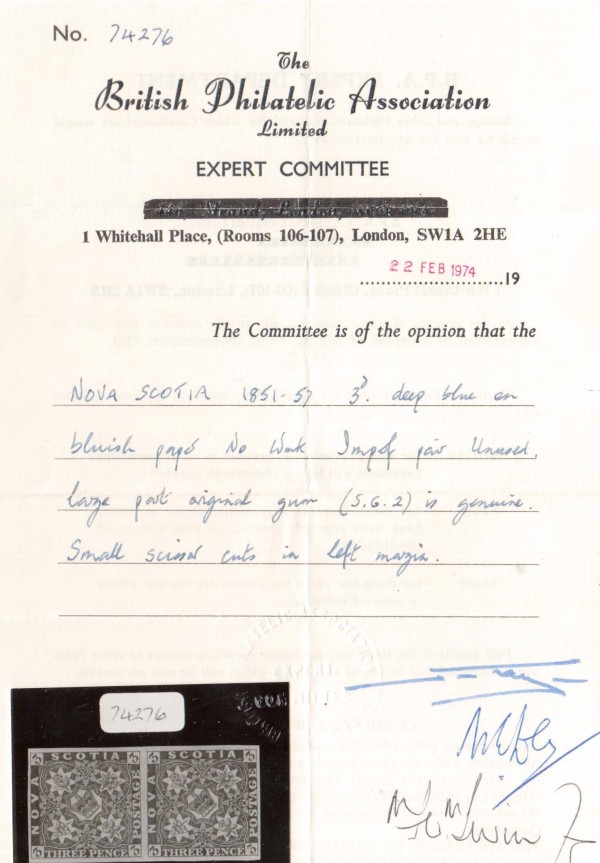 No. 74276
The
British Philatelic Association
Limited
EXPERT COMMITTEE
1 Whitehall Place, (Rooms 106-107), London, SW1A 2HE
22 FEB 1974 19
The Committee is of the opinion that the
NOVA SCOTIA 1851-57 3d. deep blue on
bluish paper No Wmk Imperf pair Unused,
large part original gum (S.G. 2) is genuine.
Small scissor cuts in left margin.
74276
SCOTIA SCOTIA
NOVA POSTAGE NOVA POSTAGE
THREE PENCE THREE PENCE